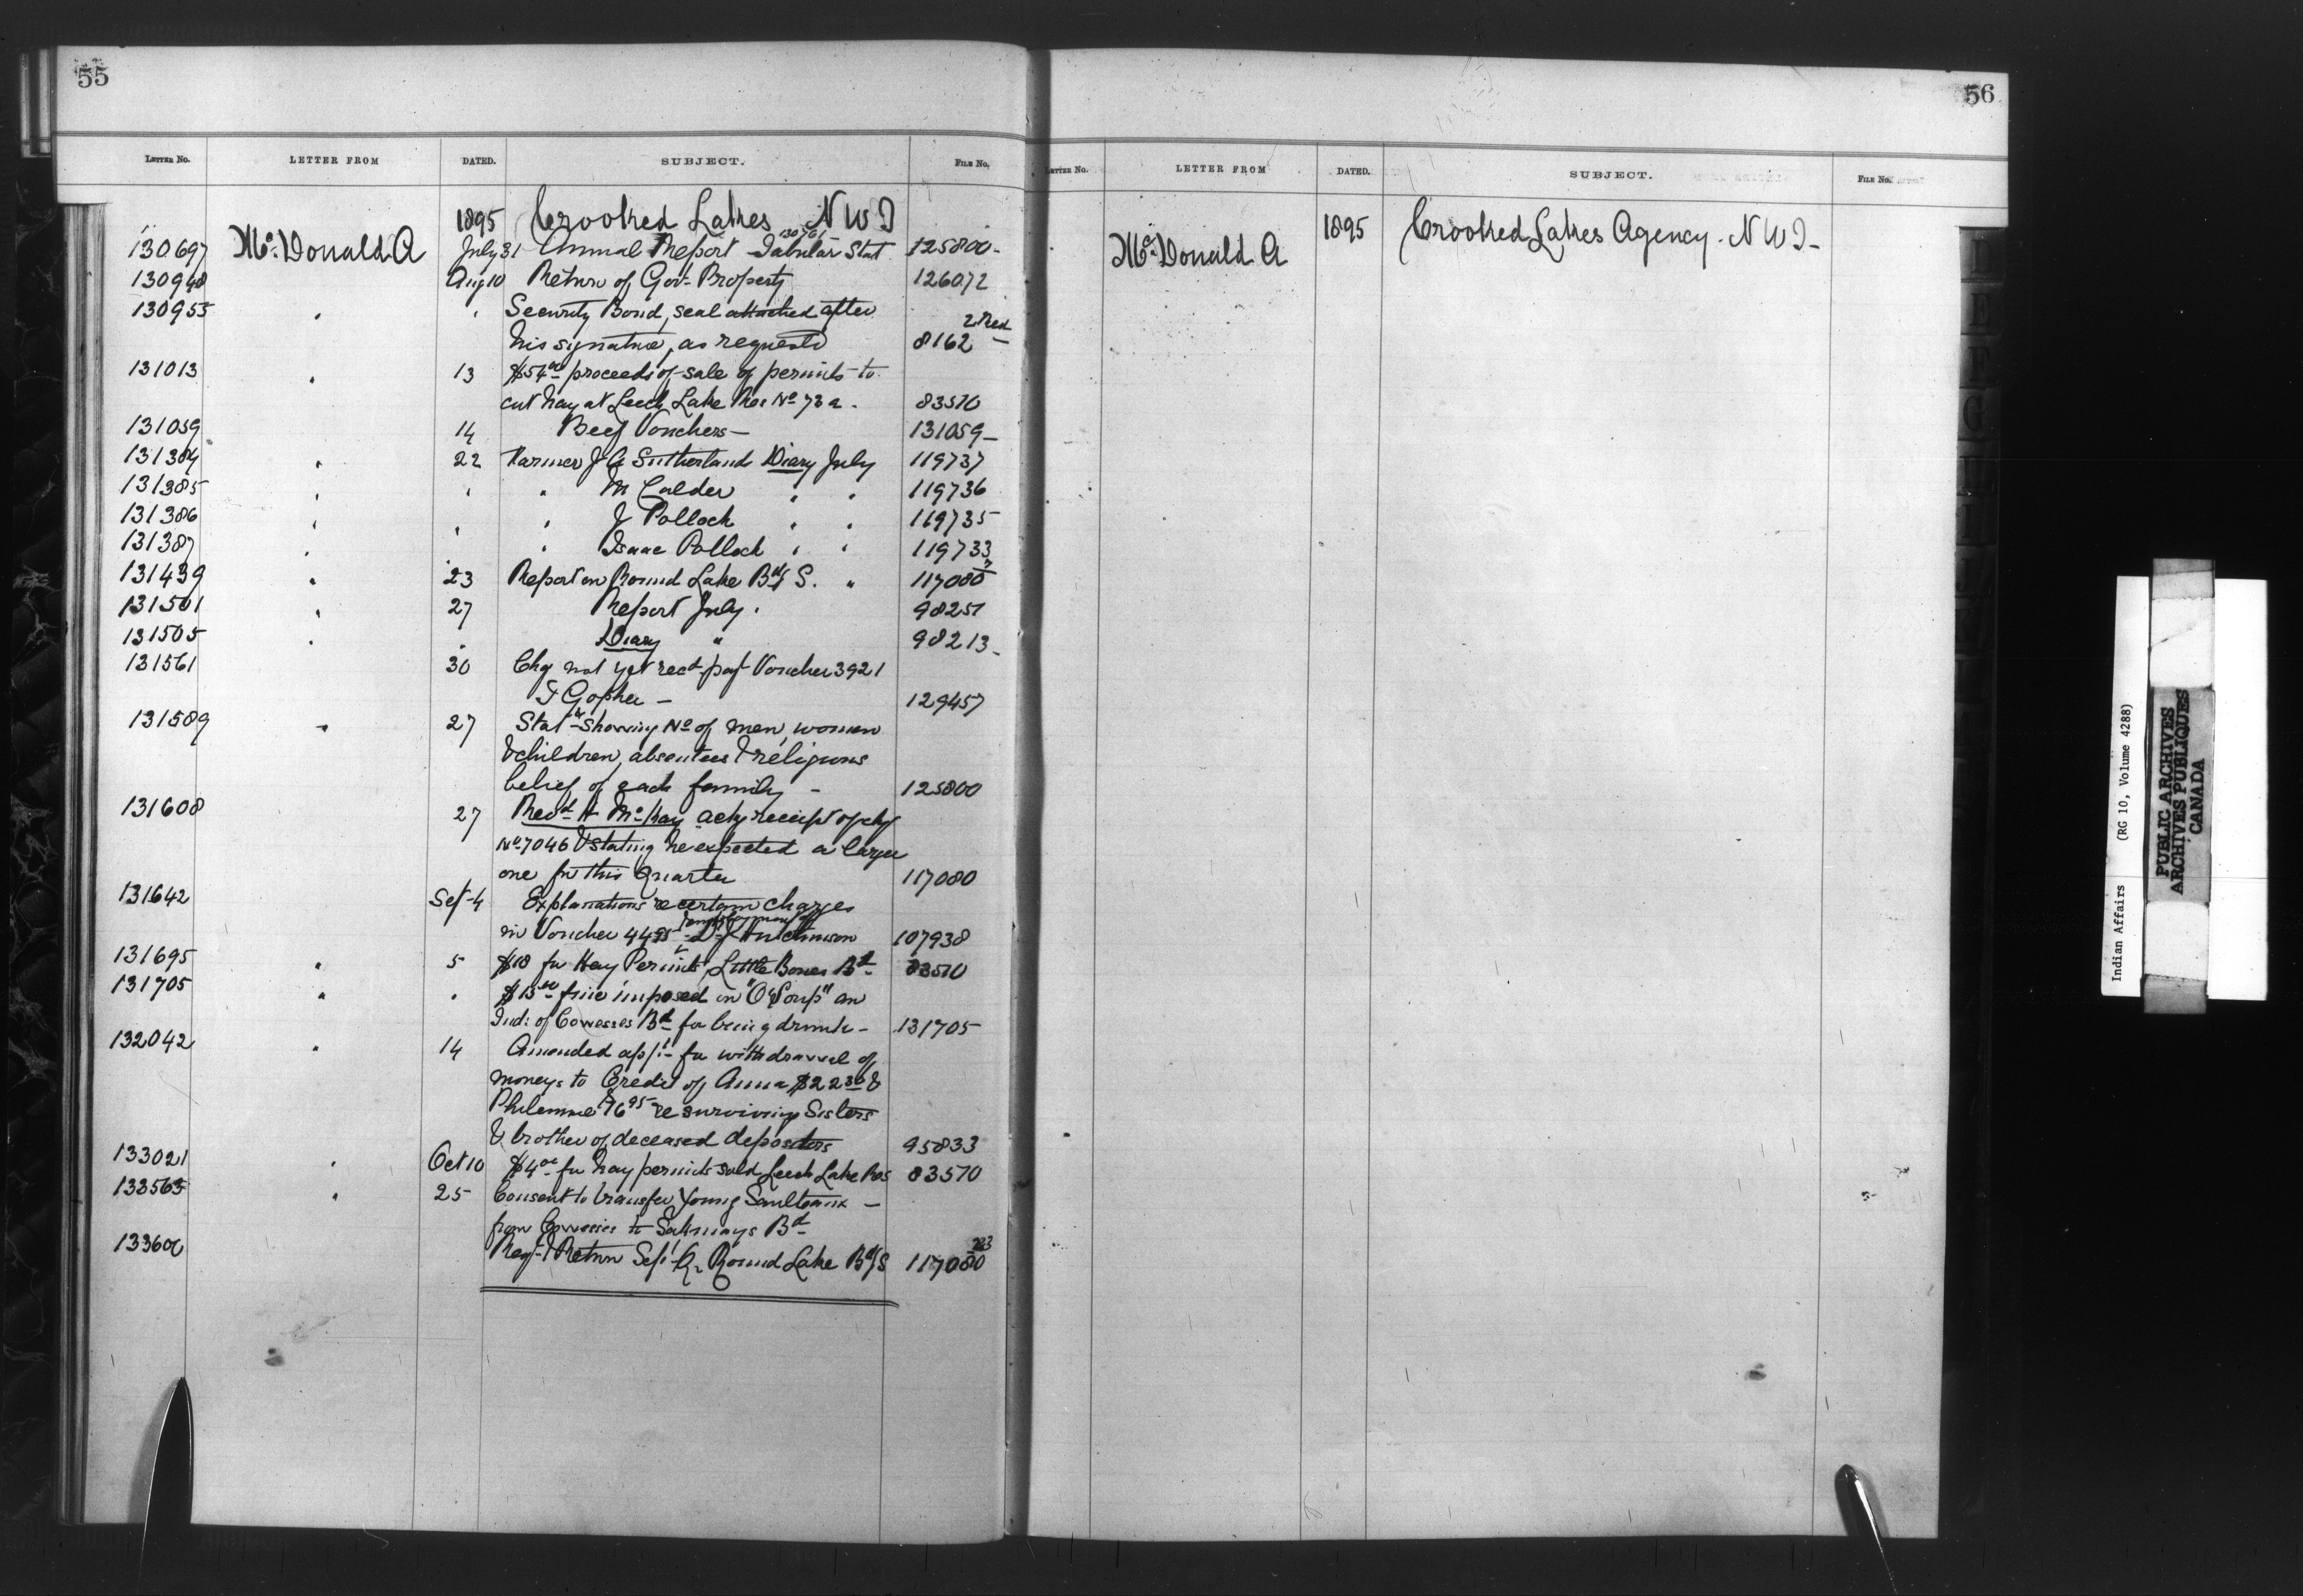 55
LETTER No. LETTER FROM DATED. SUBJECT. FILE No.
1895 Crooked Lakes N W T
130697 McDonald A July 31 Annual Report Tabular Stat 125800
130948 Aug 10 Return of Govt Property 126072
130955 " " Security Bond, seal attached after
his signature, as requested 8162 2 Red
131013 " 13 $54.00 proceeds of sale of permits to
cut hay at Leech Lake Res No 73a. 83570
131059 14 Beef Vouchers 131059
131384 " 22 Farmer J A Sutherland Diary July 119737
131385 " " " M Calder " " 119736
131386 " " " J Pollock " " 119735
131387 " " Isaac Pollock " " 119733
131439 " 23 Report on Round Lake Bdg S. " 117080
131501 " 27 Report July. 98251
131505 " " Diary " 98213
131561 30 Chq not yet recd pay Voucher 3921
F Gopher 129457
131589 " 27 Statt showing No of men, women
& children, absentees & religious
belief of each family 125800
131608 27 Revd H McKay ackg receipt of chq
No 7046 & stating he expected a larger
one for this Quarter 117080
131642 Sept 4 Explanations re certain charges
in Voucher 4495 Dr Hutchinson 107938
131695 " 5 $18 for Hay Permits, Little Bones Bd 83570
131705 " " $15.00 fine imposed on "O'Soup" an
Ind: of Cowesses Bd for being drunk 131705
132042 " 14 Amended appn for withdrawal of
moneys to Credit of Anna $22.30 &
Philemme $16.95 re surviving Sisters
& brother of deceased depositors 95833
133021 " Oct 10 $4.00 for hay permits sold Leech Lake Res 83570
133563 " 25 Consent to transfer Young Saulteaux
from Cowesses to Sakimays Bd
133606 Reqn & Return Sept Qr Round Lake Bdg S 117080
56
LETTER No. LETTER FROM DATED. SUBJECT. FILE No.
McDonald A 1895 Crooked Lakes Agency. N W T
Indian Affairs (RG 10, Volume 4288)
PUBLIC ARCHIVES
ARCHIVES PUBLIQUES
CANADA